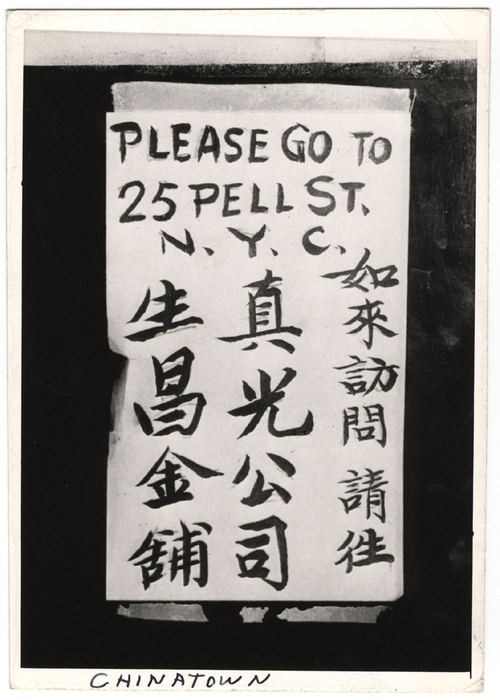 PLEASE GO TO
25 PELL ST.
N. Y. C.
如來訪問請往
真光公司
生昌金舖
CHINATOWN